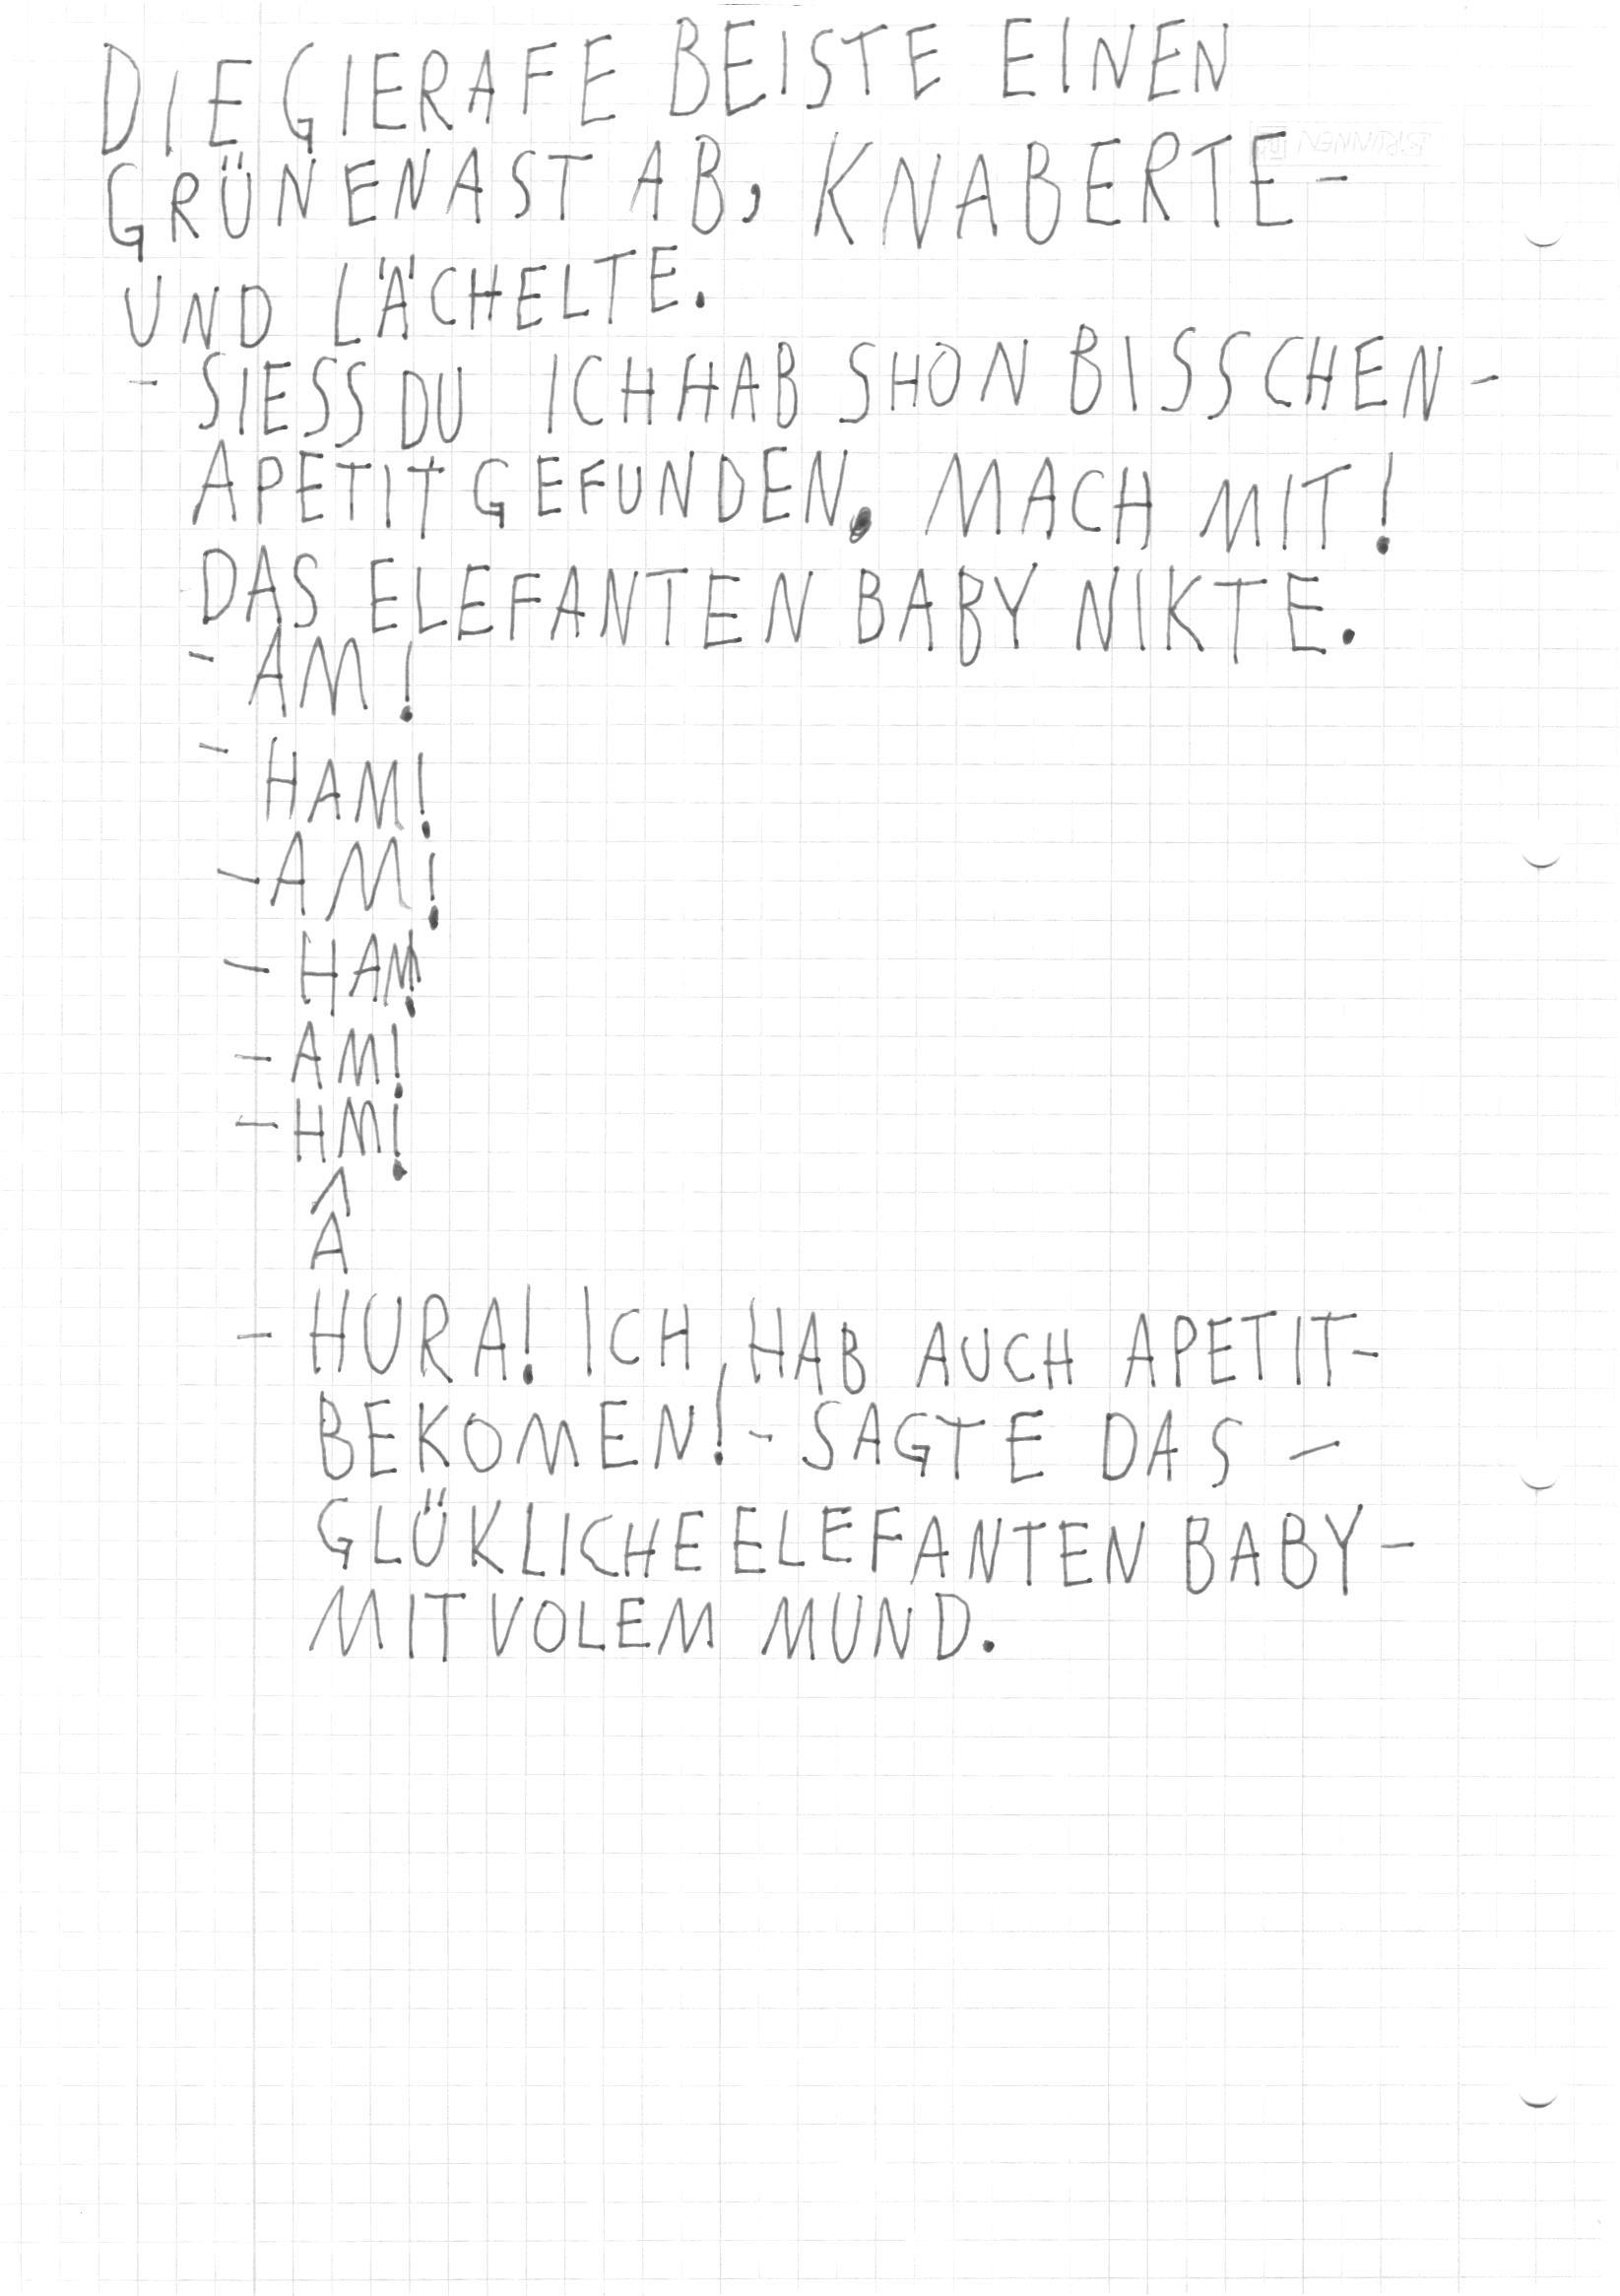 DIE GIERAFE BEISTE EINEN
GRÜNENAST AB, KNABERTE-
UND LÄCHELTE.
- SIESS DU ICHHAB SHON BISSCHEN-
APETIT GEFUNDEN. MACH MIT!
DAS ELEFANTEN BABY NIKTE.
- AM!
- HAM!
- AM!
- HAM!
- AM!
- HM!
A
- HURA! ICH HAB AUCH APETIT-
BEKOMEN! - SAGTE DAS -
GLÜKLICHE ELEFANTEN BABY-
MIT VOLEM MUND.